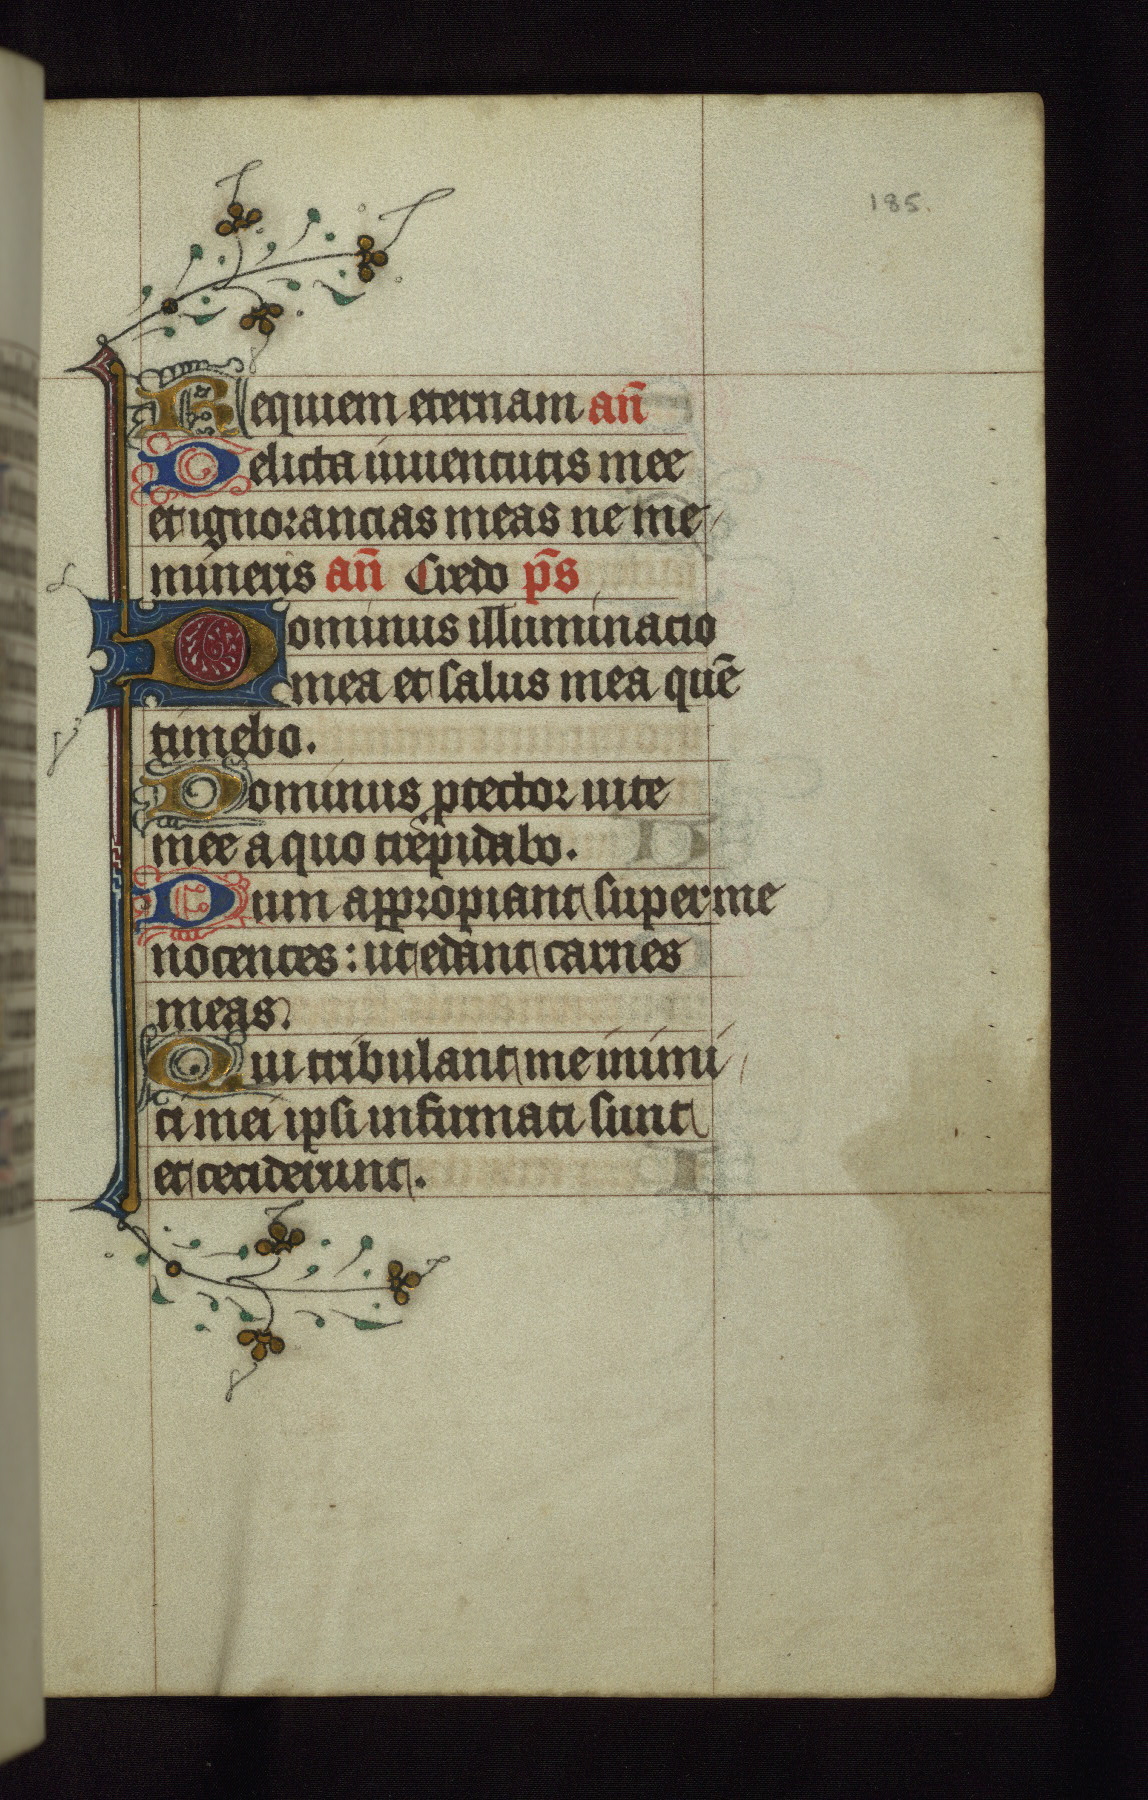 185.
Requiem eternam an̄
Delicta iuuentutis mee
et ignorancias meas ne me
mineris an̄ Credo p̄s
Dominus illuminacio
mea et salus mea quē
timebo.
Dominus ꝓtector uite
mee a quo trepidabo.
Dum appropiant super me
nocentes : ut edant carnes
meas.
Qui tribulant me inimi
ci mei ipsi infirmati sunt
et ceciderunt.